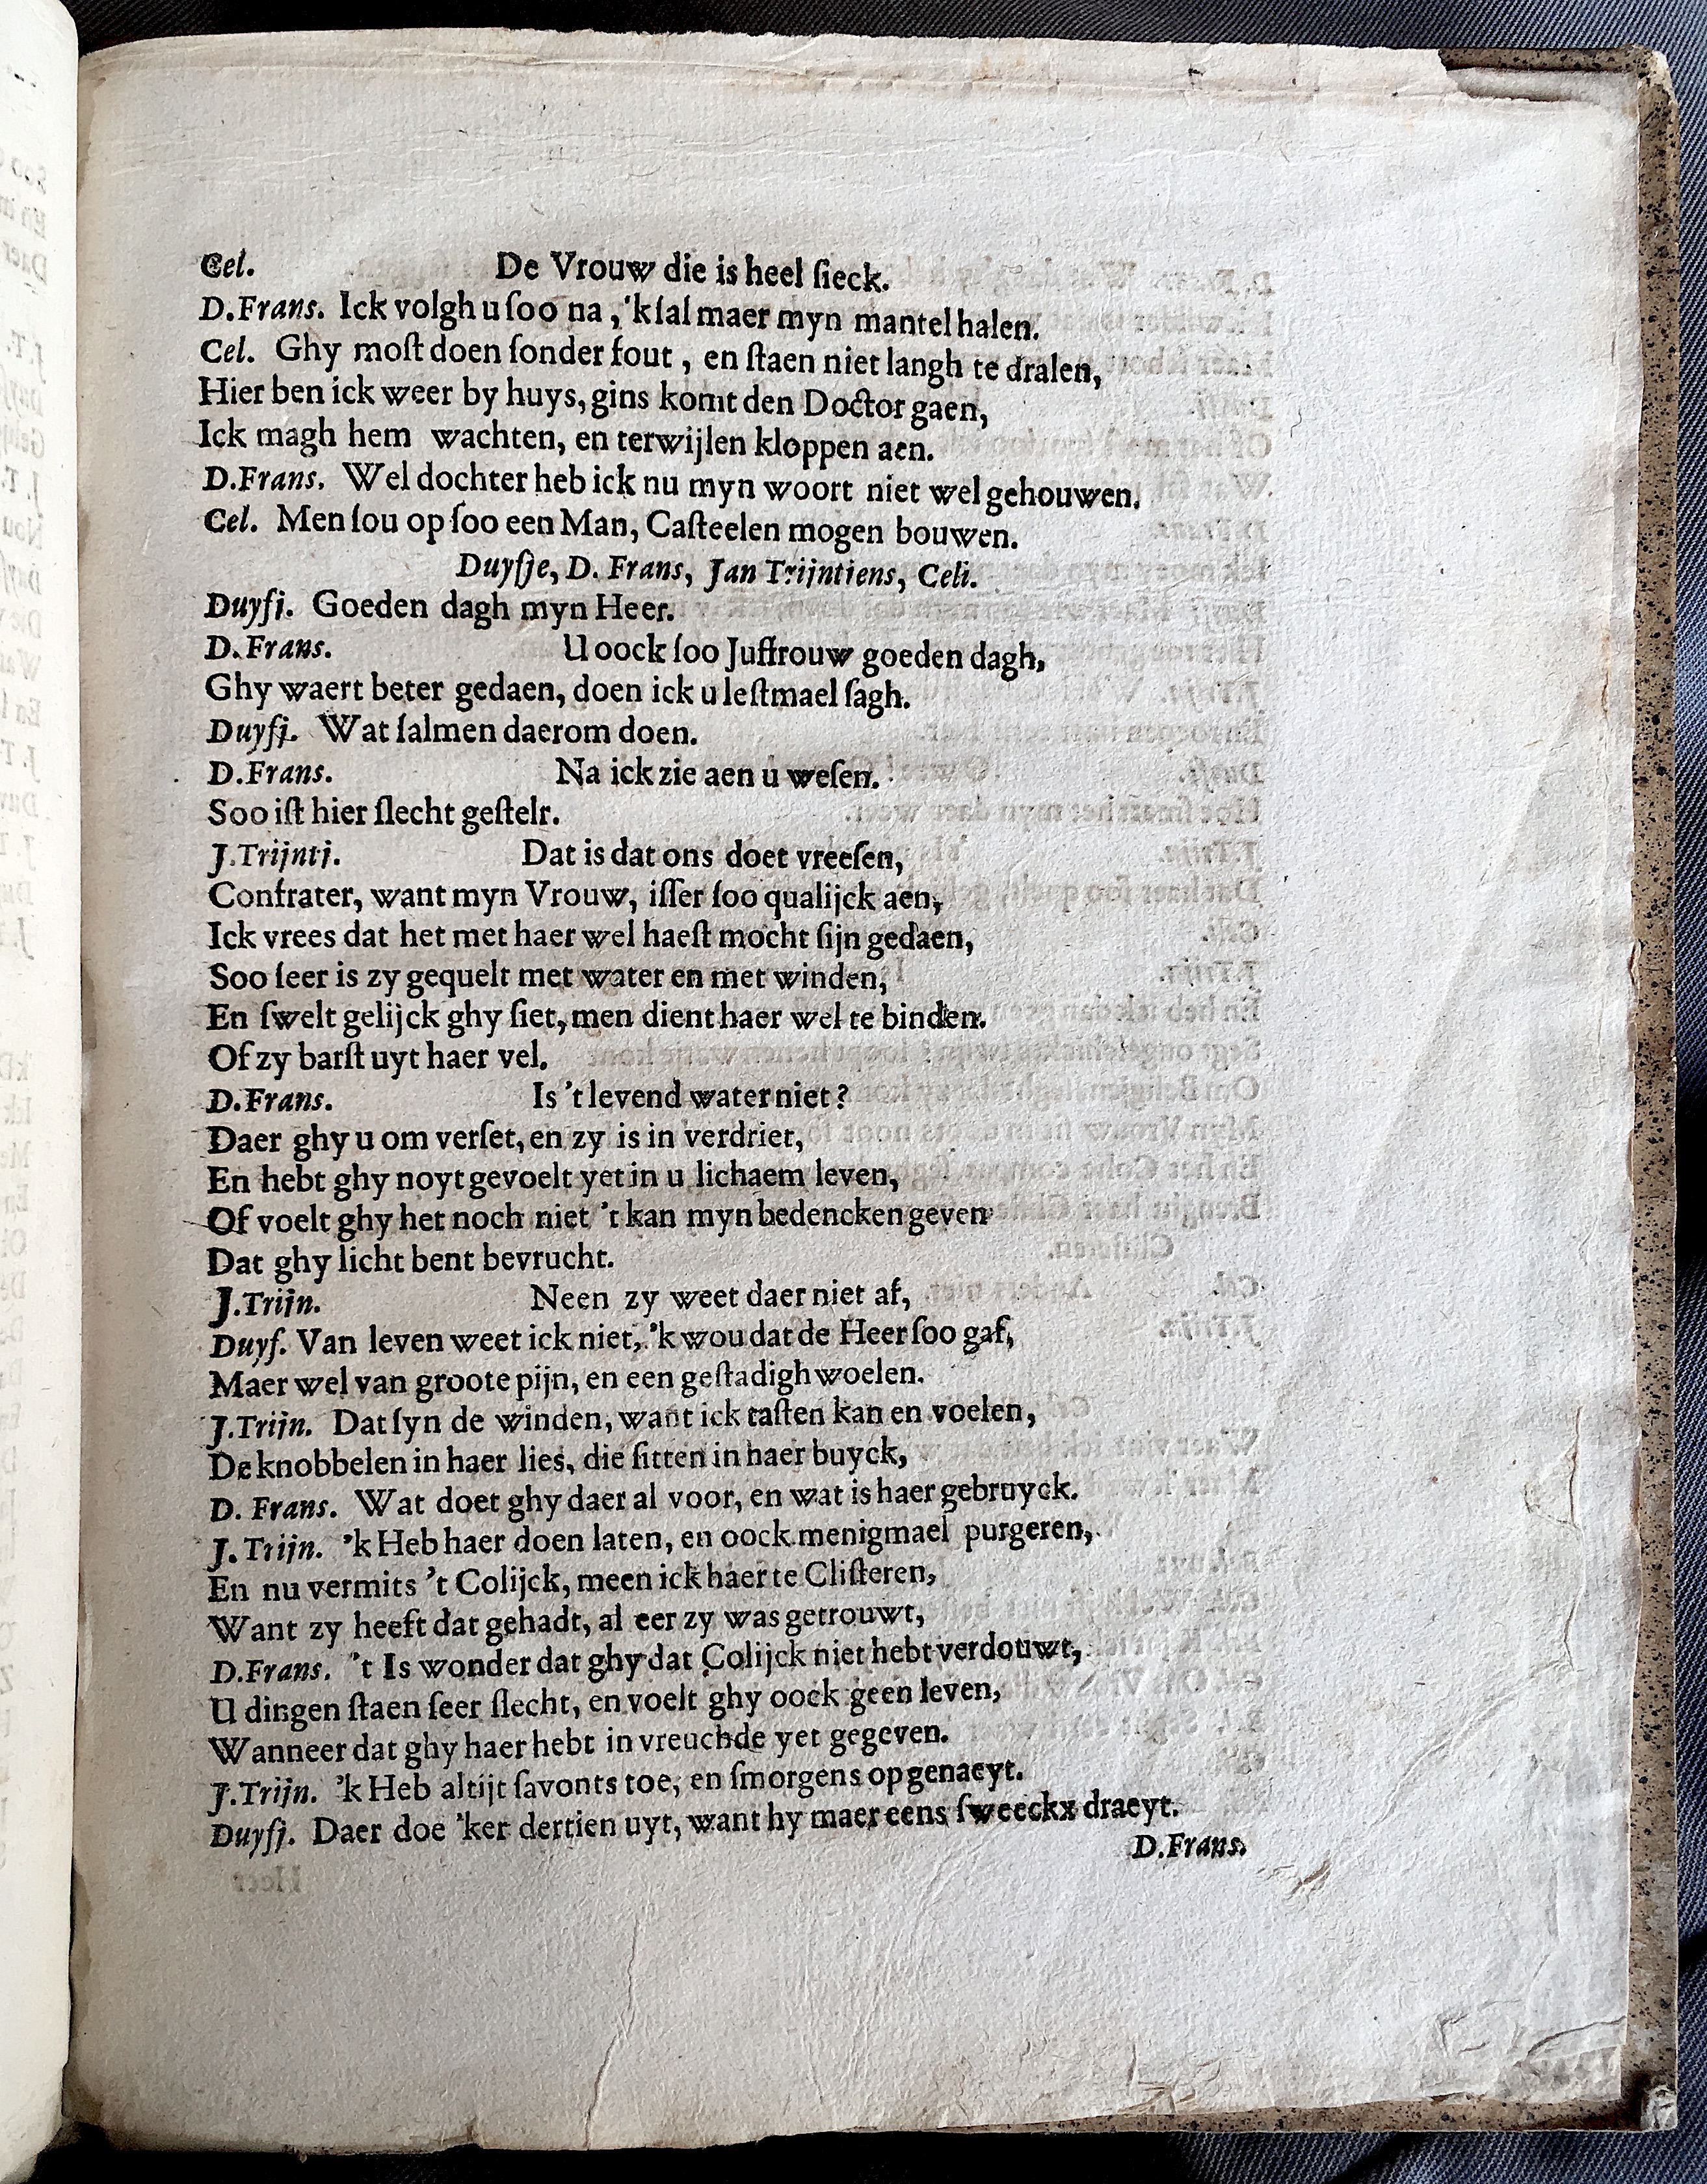 Cel. De Vrouw die is heel ſieck.
D.Frans. Ick volgh u ſoo na, 'k ſal maer myn mantel halen.
Cel. Ghy moſt doen ſonder fout, en ſtaen niet langh te dralen,
Hier ben ick weer by huys, gins komt den Doctor gaen,
Ick magh hem wachten, en terwijlen kloppen aen.
D.Frans. Wel dochter heb ick nu myn woort niet wel gehouwen.
Cel. Men ſou op ſoo een Man, Caſteelen mogen bouwen.
Duyſje, D. Frans, Jan Trijntiens, Celi.
Duyſj. Goeden dagh myn Heer.
D.Frans. U oock ſoo Juffrouw goeden dagh,
Ghy waert beter gedaen, doen ick u leſtmael ſagh.
Duyſj. Wat ſalmen daerom doen.
D.Frans. Na ick zie aen u weſen.
Soo iſt hier ſlecht geſtelr.
J.Trijnti. Dat is dat ons doet vreeſen,
Confrater, want myn Vrouw, iſſer ſoo qualijck aen,
Ick vrees dat het met haer wel haeſt mocht ſijn gedaen,
Soo ſeer is zy gequelt met water en met winden,
En ſwelt gelijck ghy ſiet, men dient haer wel te binden.
Of zy barſt uyt haer vel.
D.Frans. Is 't levend water niet?
Daer ghy u om verſet, en zy is in verdriet,
En hebt ghy noyt gevoelt yet in u lichaem leven,
Of voelt ghy het noch niet 't kan myn bedencken geven
Dat ghy licht bent bevrucht.
J.Trijn. Neen zy weet daer niet af,
Duyſ. Van leven weet ick niet, 'k wou dat de Heer ſoo gaf,
Maer wel van groote pijn, en een geſtadigh woelen.
J.Trijn. Dat ſyn de winden, want ick taſten kan en voelen,
De knobbelen in haer lies, die ſitten in haer buyck,
D. Frans. Wat doet ghy daer al voor, en wat is haer gebruyck.
J. Trijn. 'k Heb haer doen laten, en oock menigmael purgeren,
En nu vermits 't Colijck, meen ick haer te Cliſteren,
Want zy heeft dat gehadt, al eer zy was getrouwt,
D.Frans. 't Is wonder dat ghy dat Colijck niet hebt verdouwt,
U dingen ſtaen ſeer ſlecht, en voelt ghy oock geen leven,
Wanneer dat ghy haer hebt in vreuchde yet gegeven.
J.Trijn. 'k Heb altijt ſavonts toe, en ſmorgens opgenaeyt.
Duyſj. Daer doe 'ker dertien uyt, want hy maer eens ſweeckx draeyt.
D.Frans.